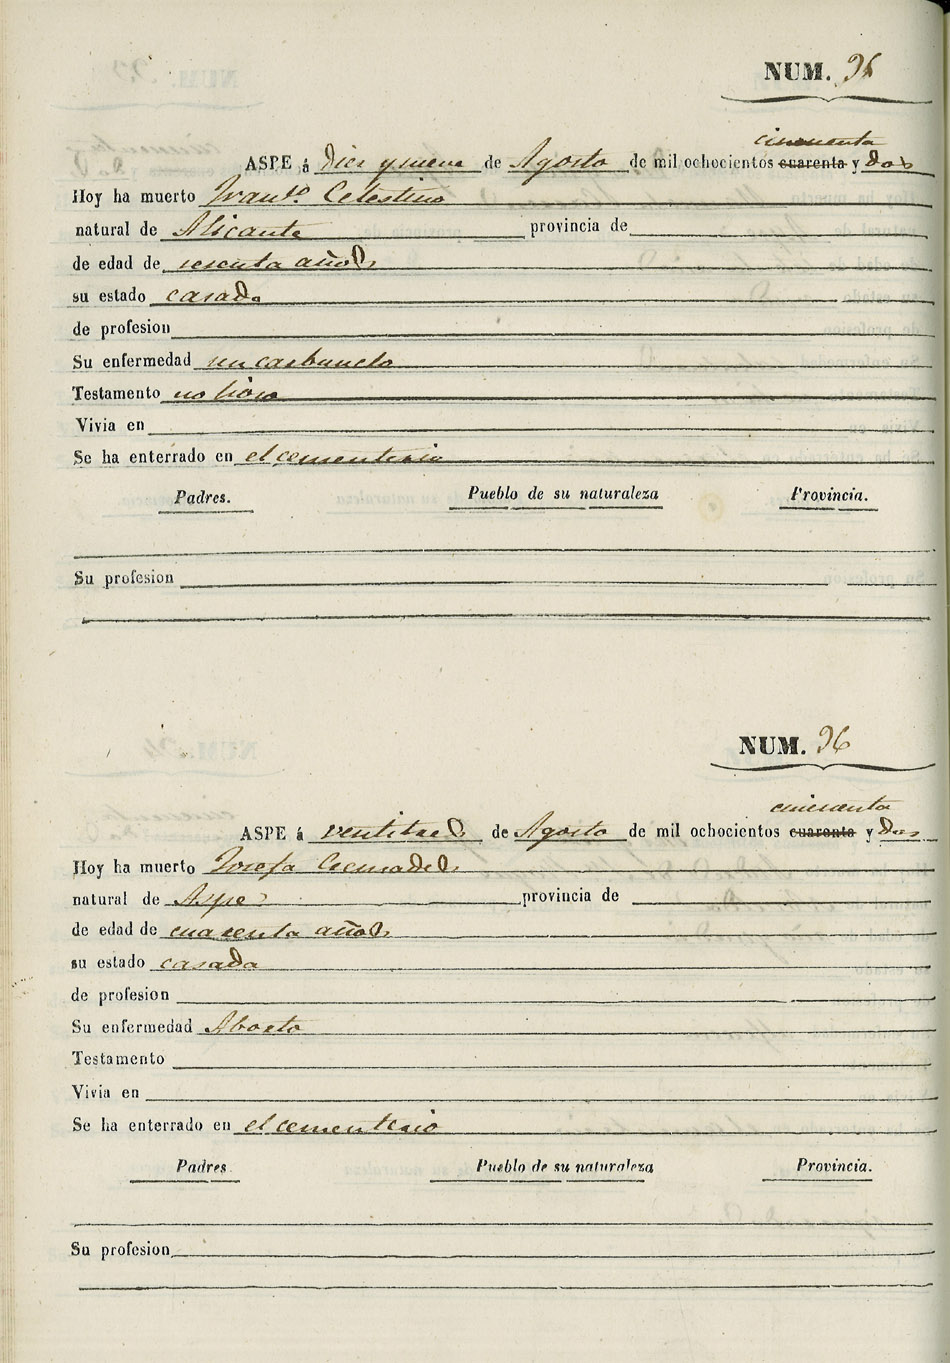 NUM. 95
cincuenta
ASPE á Diez y nueve de Agosto de mil ochocientos cuarenta y dos
Hoy ha muerto Franco. Celestino
natural de Alicante provincia de
de edad de sesenta años
su estado casado
de profesion
Su enfermedad un carbunclo
Testamento no hizo
Vivia en
Se ha enterrado en el cementerio
Padres. Pueblo de su naturaleza Provincia.
Su profesion
NUM. 96
cincuenta
ASPE á ventitres de Agosto de mil ochocientos cuarenta y dos
Hoy ha muerto Josefa
natural de Aspe provincia de
de edad de cuarenta años
su estado casada
de profesion
Su enfermedad Aborto
Testamento
Vivia en
Se ha enterrado en el cementerio
Padres. Pueblo de su naturaleza Provincia.
Su profesion